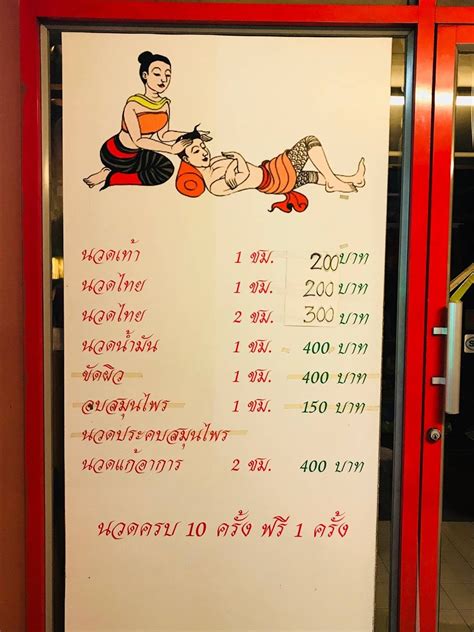 นวดเท้า 1 ชม. 200 บาท
นวดไทย 1 ชม. 200 บาท
นวดไทย 2 ชม. 300 บาท
นวดน้ำมัน 1 ชม. 400 บาท
ขัดผิว 1 ชม. 400 บาท
อบสมุนไพร 1 ชม. 150 บาท
นวดประคบสมุนไพร
นวดแก้อาการ 2 ชม. 400 บาท
นวดครบ 10 ครั้ง ฟรี 1 ครั้ง